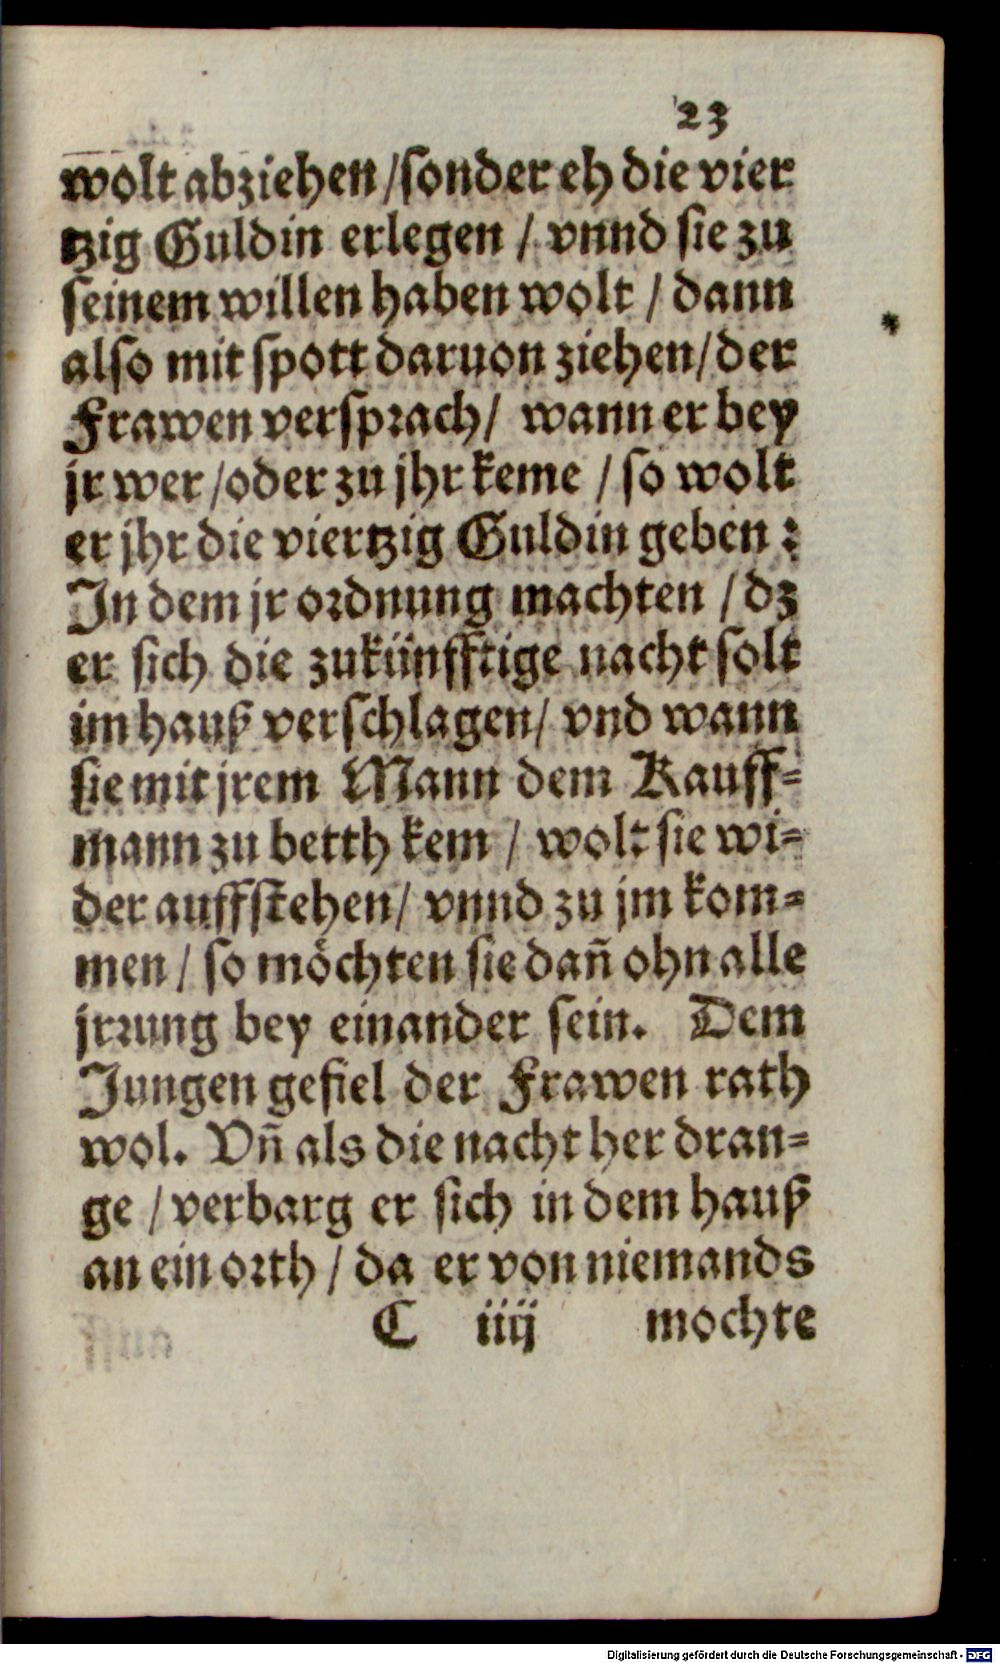 23
wolt abziehen / sonder eh die vier
tzig Guldin erlegen / vnnd sie zu
seinem willen haben wolt / dann
also mit spott daruon ziehen / der
Frawen versprach / wann er bey
jr wer / oder zu jhr keme / so wolt
er jhr die viertzig Guldin geben:
In dem jr ordnung machten / dz
er sich die zukünfftige nacht solt
im hauß verschlagen / vnd wann
sie mit jrem Mann dem Kauff-
mann zu betth kem / wolt sie wi-
der auffstehen / vnnd zu jm kom-
men / so möchten sie dañ ohn alle
jrrung bey einander sein. Dem
Jungen gefiel der Frawen rath
wol. Vñ als die nacht her dran-
ge / verbarg er sich in dem hauß
an ein orth / da er von niemands
C iiij mochte
Digitalisierung gefördert durch die Deutsche Forschungsgemeinschaft - DFG